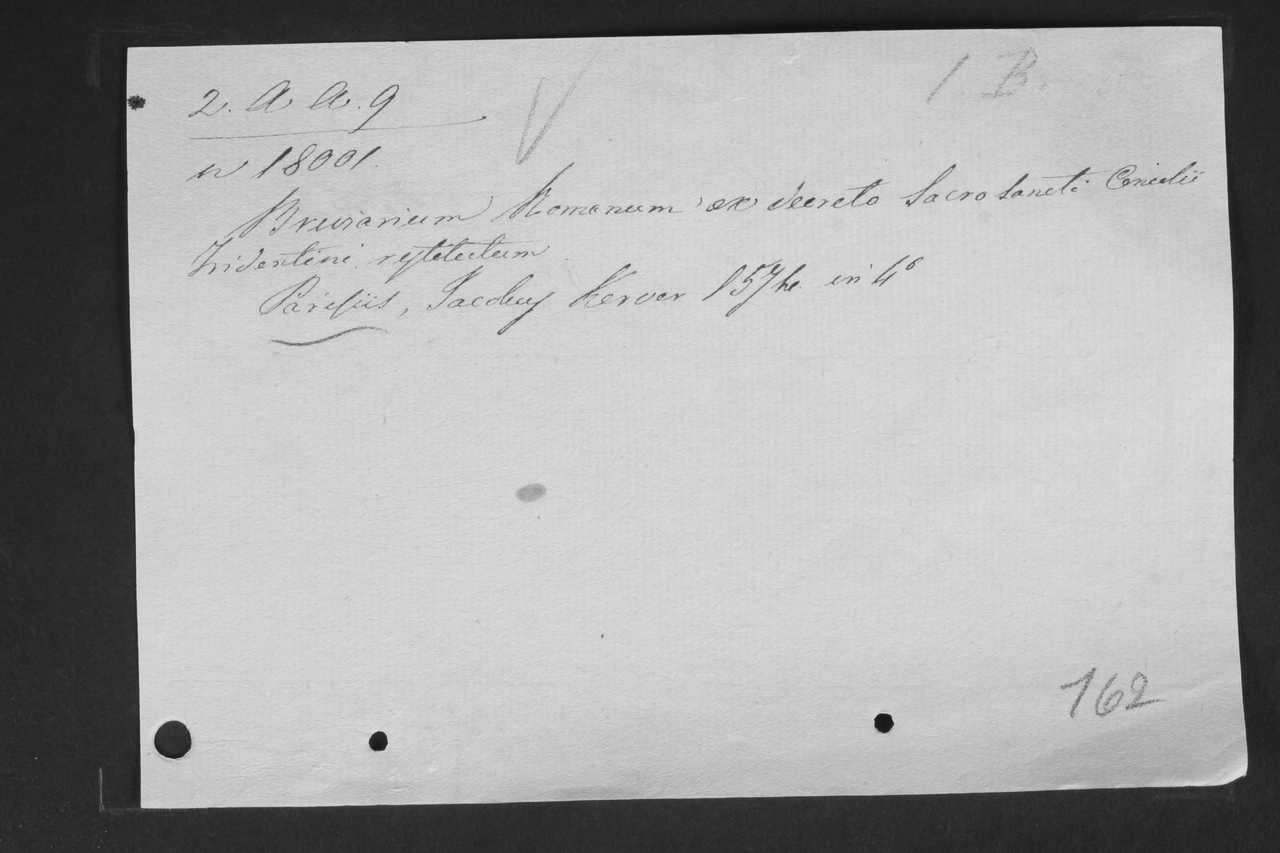 1 B.
2. A A. 9
n 18001.
Breviarium Romanum ex decreto Sacro Sancti Concilii
Tridentini restitutum
Parisiis, Jacobus Kerver 1574 in 4°
162